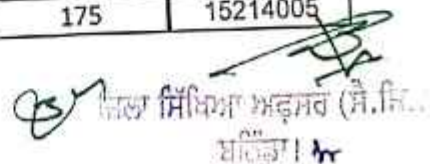 175 15214005
ਜਿਲਾ ਸਿੱਖਿਆ ਅਫ਼ਸਰ (ਸੈ.ਸਿ..
ਬਠਿੰਡਾ।